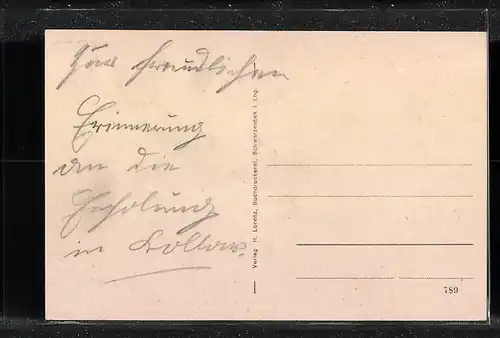 Zur freundlichen
Erinnerung
an die
Erholung
in Kollow.
Verlag H. Lorenz, Buchdruckerei, Schwarzenbek i. Lbg.
789